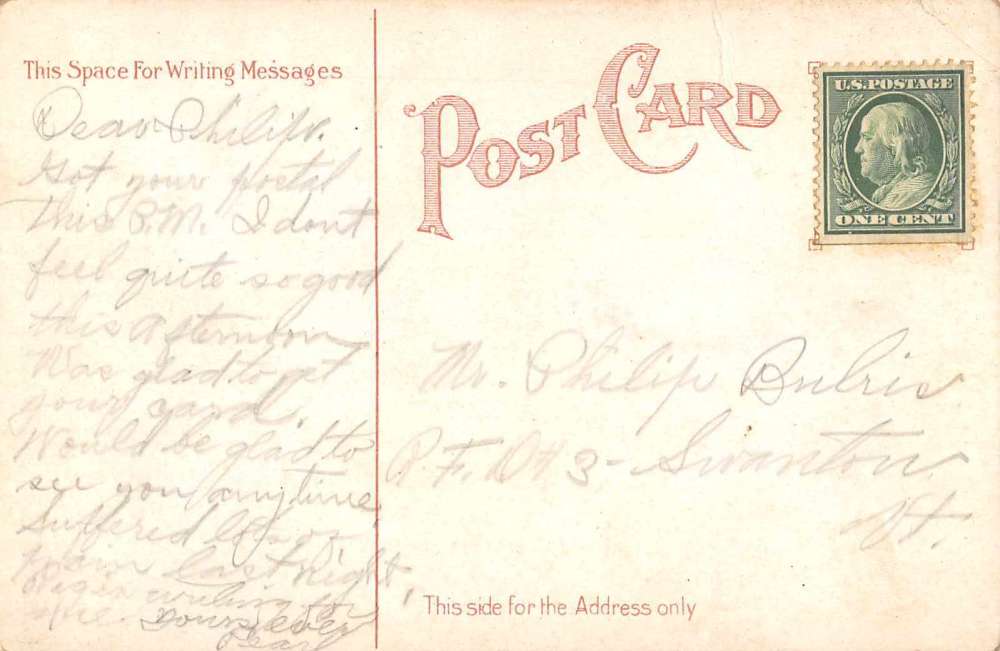 This Space For Writing Messages
Dear Philip.
Got your postal
this P.M. I dont
feel quite so good
this afternoon
Was glad to get
your card.
Would be glad to
see you anytime
Suffered lots of
pain last night
writing for
me. Yours ever
Pearl
POST CARD
U.S. POSTAGE
ONE CENT
Mr. Philip
R.F.D #3 - Swanton
Vt.
This side for the Address only